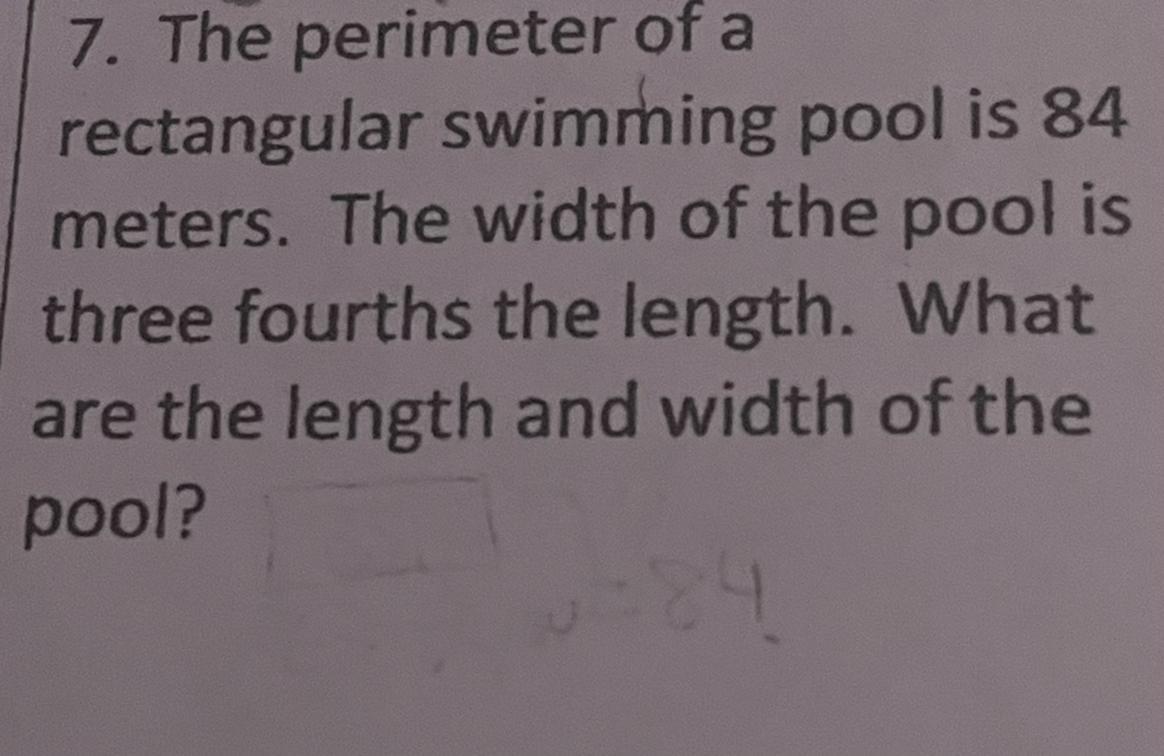 7. The perimeter of a
rectangular swimming pool is 84
meters. The width of the pool is
three fourths the length. What
are the length and width of the
pool?
= 84